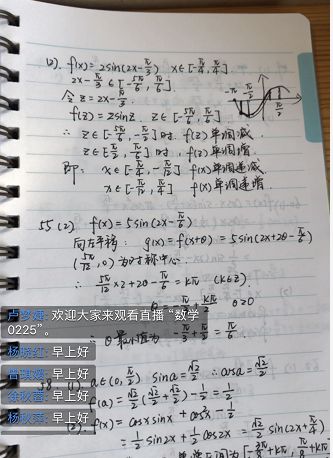 (2). f(x)=2sin(2x-π/3) x∈[-π/4, π/4].
2x-π/3∈[-5π/6, π/6]
令z=2x-π/3.
f(z)=2sinz. z∈[-5π/6, π/6]
∴ z∈[-5π/6, -π/2]时 f(z)单调减.
z∈[-π/2, π/6]时, f(z)单调增.
即: x∈[-π/4, -π/12] f(x)单调递减.
x∈[-π/12, π/4] f(x)单调递增.
-π
π/2
55 (2) f(x)=5sin(2x-π/6)
向左平移: g(x)=f(x+θ)=5sin(2x+2θ-π/6)
(5π/12, 0)为对称中心
∴ 5π/12×2+2θ-π/6=kπ (k∈Z).
θ>0
卢梦娥: 欢迎大家来观看直播“数学
0225”。
∴ θ最小值为 -π/3+π/2=π/6
杨晓红: 早上好
(1) a∈(0, π/2) sina=√2/2 ∴cosa=√2/2
早上好
f(a)=√2/2(√2/2+√2/2)-1/2=1/2
早上好
(2). f(x)=cosxsinx+cos²x-1/2
早上好
=1/2sin2x+1/2cos2x=√2/2sin(2x+π/4)
[-3π/8+kπ, π/8+kπ]